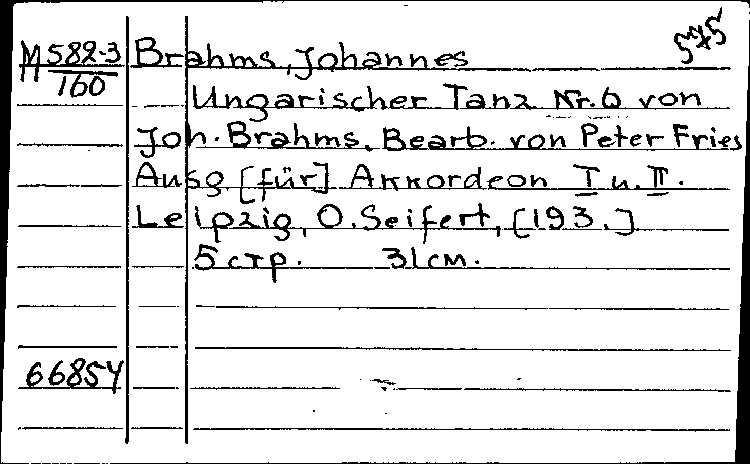 575
M 582-3
160
Brahms, Johannes
Ungarischer Tanz Nr. 6 von
Joh. Brahms. Bearb. von Peter Fries
Ausg [für] Akkordeon I u. II.
Leipzig, O. Seifert, [193.]
5 стр. 31 см.